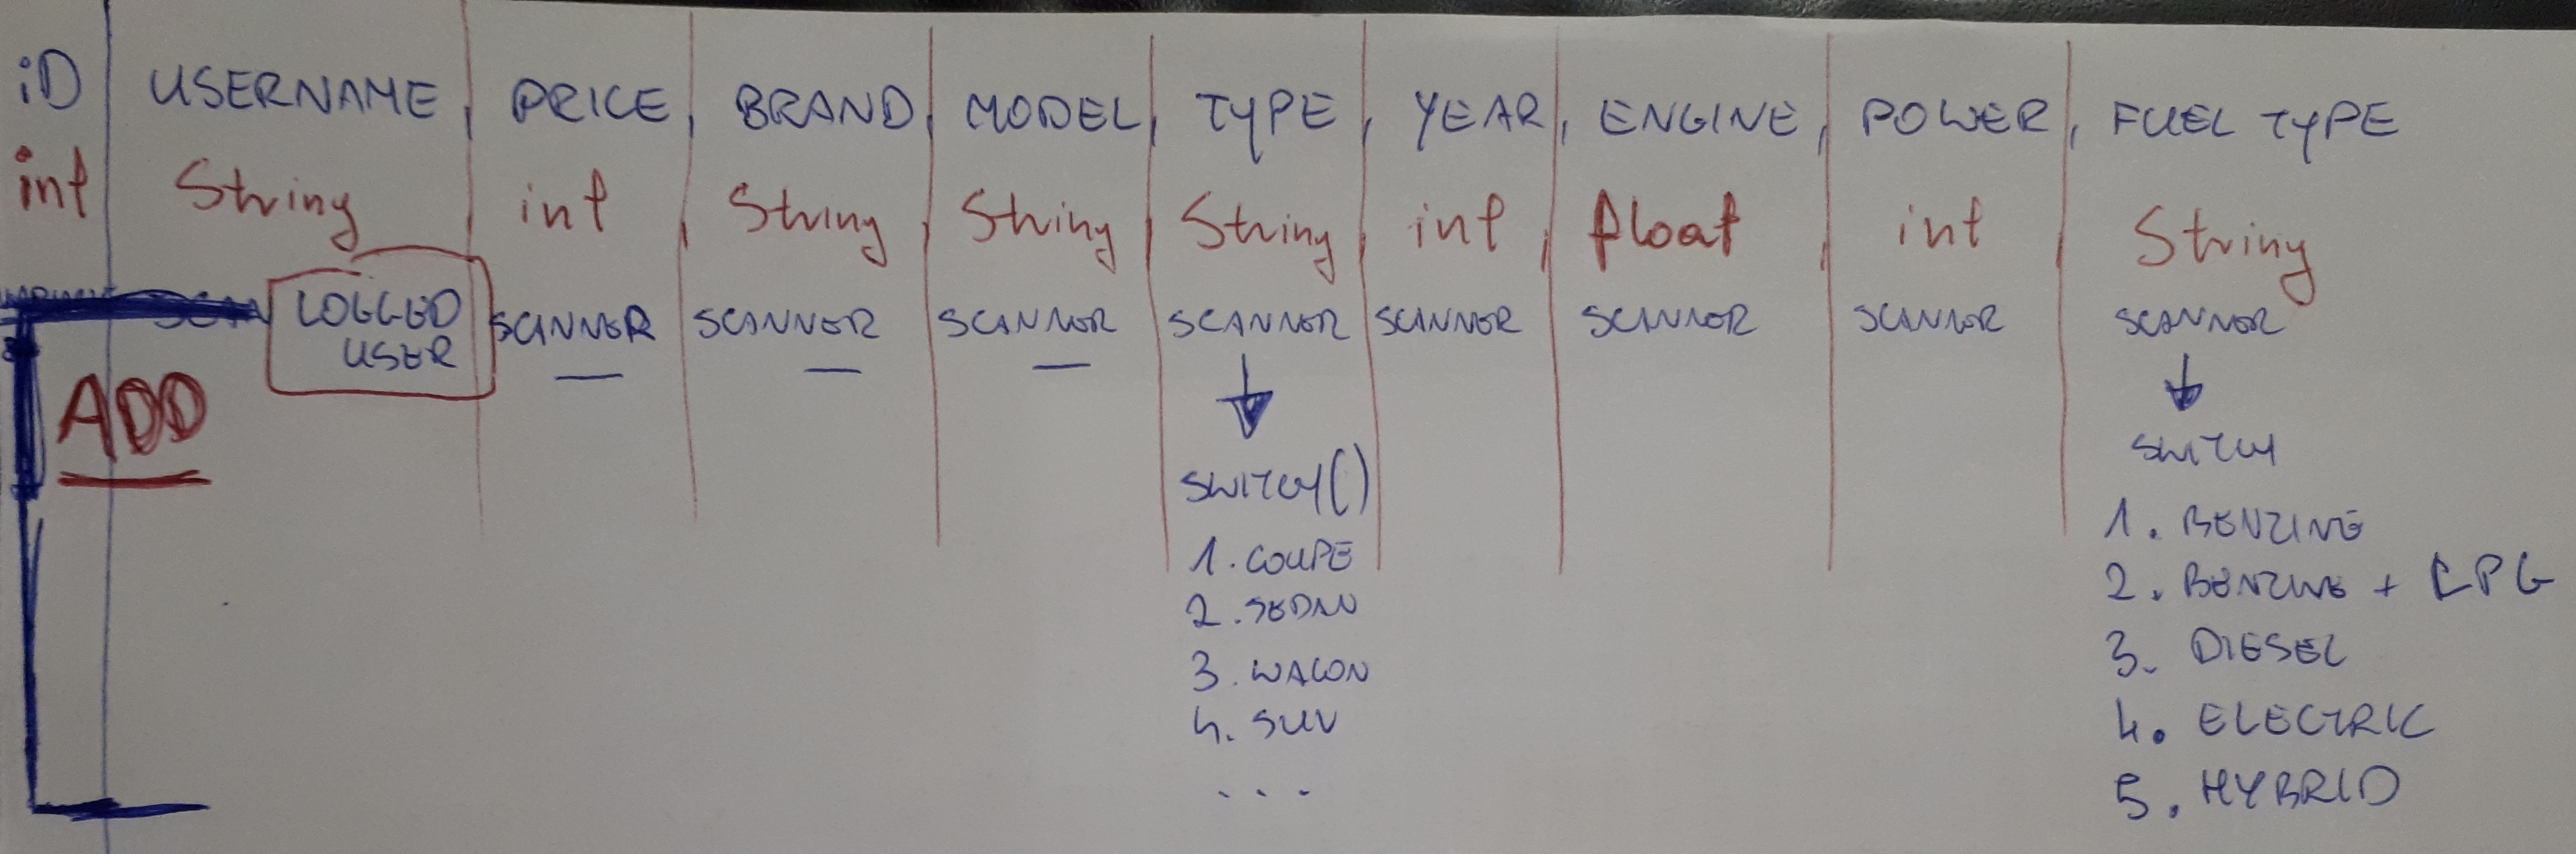 iD USERNAME, PRICE, BRAND, MODEL, TYPE, YEAR, ENGINE, POWER, FUEL TYPE
int String int, String, String, String, int, float, int, String
LOGGED USER SCANNER SCANNER SCANNER SCANNER SCANNER SCANNER SCANNER SCANNER
ADD
SWITCH()
1. COUPE
2. SEDAN
3. WAGON
4. SUV
...
SWITCH
1. BENZINE
2. BENZINE + LPG
3. DIESEL
4. ELECTRIC
5. HYBRID